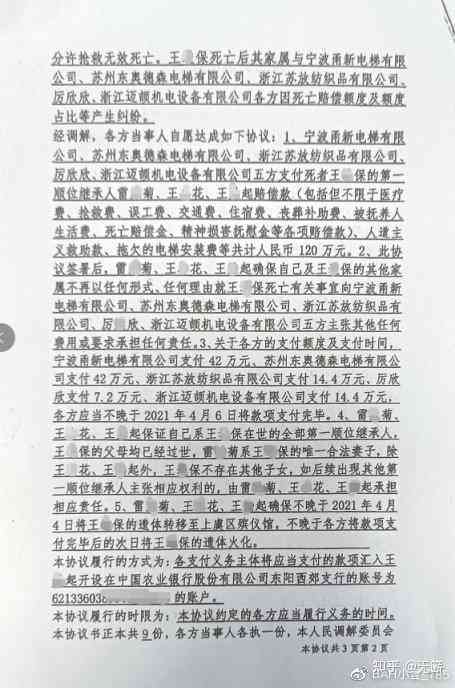 分许抢救无效死亡。王 保死亡后其家属与宁波甬新电梯有限
公司、苏州东奥德森电梯有限公司、浙江苏放纺织品有限公司、
厉欣欣、浙江迈颇机电设备有限公司各方因死亡赔偿额度及额度
占比等产生纠纷。
经调解，各方当事人自愿达成如下协议：1、宁波甬新电梯有限公
司、苏州东奥德森电梯有限公司、浙江苏放纺织品有限公司、
厉欣欣、浙江迈颇机电设备有限公司五方支付死者王 保的第一
顺位继承人雷 菊、王 花、王 起赔偿款（包括但不限于医疗
费、抢救费、误工费、交通费、住宿费、丧葬补助费、被抚养人
生活费、死亡赔偿金、精神损害抚慰金等各项赔偿款）、人道主
义救助款、拖欠的电梯安装费等共计人民币 120 万元。2、此协
议签署后，雷 菊、王 花、王 起确保自己及王 保的其他家
属不再以任何形式、任何理由就王 保死亡有关事宜向宁波甬新
电梯有限公司、苏州东奥德森电梯有限公司、浙江苏放纺织品有
限公司、厉 欣、浙江迈颇机电设备有限公司五方主张其他任何
费用或要求承担任何责任。3、关于各方的支付额度及支付时间，
宁波甬新电梯有限公司支付 42 万元、苏州东奥德森电梯有限公
司支付 42 万元、浙江苏放纺织品有限公司支付 14.4 万元、厉欣
欣支付 7.2 万元、浙江迈颇机电设备有限公司支付 14.4 万元，
各方应当不晚于 2021 年 4 月 6 日将款项支付完毕。4、雷 菊、
王 花、王 起保证自己系王 保在世的全部第一顺位继承人，
王 保的父母均已经过世，雷 菊系王 保的唯一合法妻子，除
王 花、王 起外，王 保不存在其他子女，如后续出现其他第
一顺位继承人主张相应权利的，由雷 菊、王 花、王 起承担
相应责任。5、雷 菊、王 花、王 起确保不晚于 2021 年 4 月
4 日将王 保的遗体转移至上虞区殡仪馆，不晚于各方将款项支
付完毕后的次日将王 保的遗体火化。
本协议履行的方式为：各支付义务主体将应当支付的款项汇入王
起开设在中国农业银行股份有限公司东阳西郊支行的账号为
621336038 的账户。
本协议履行的时限为：本协议约定的各方应当履行义务的时间。
本协议书正本共 9 份，各方当事人各执一份，本人民调解委员会
本协议共 3 页第 2 页